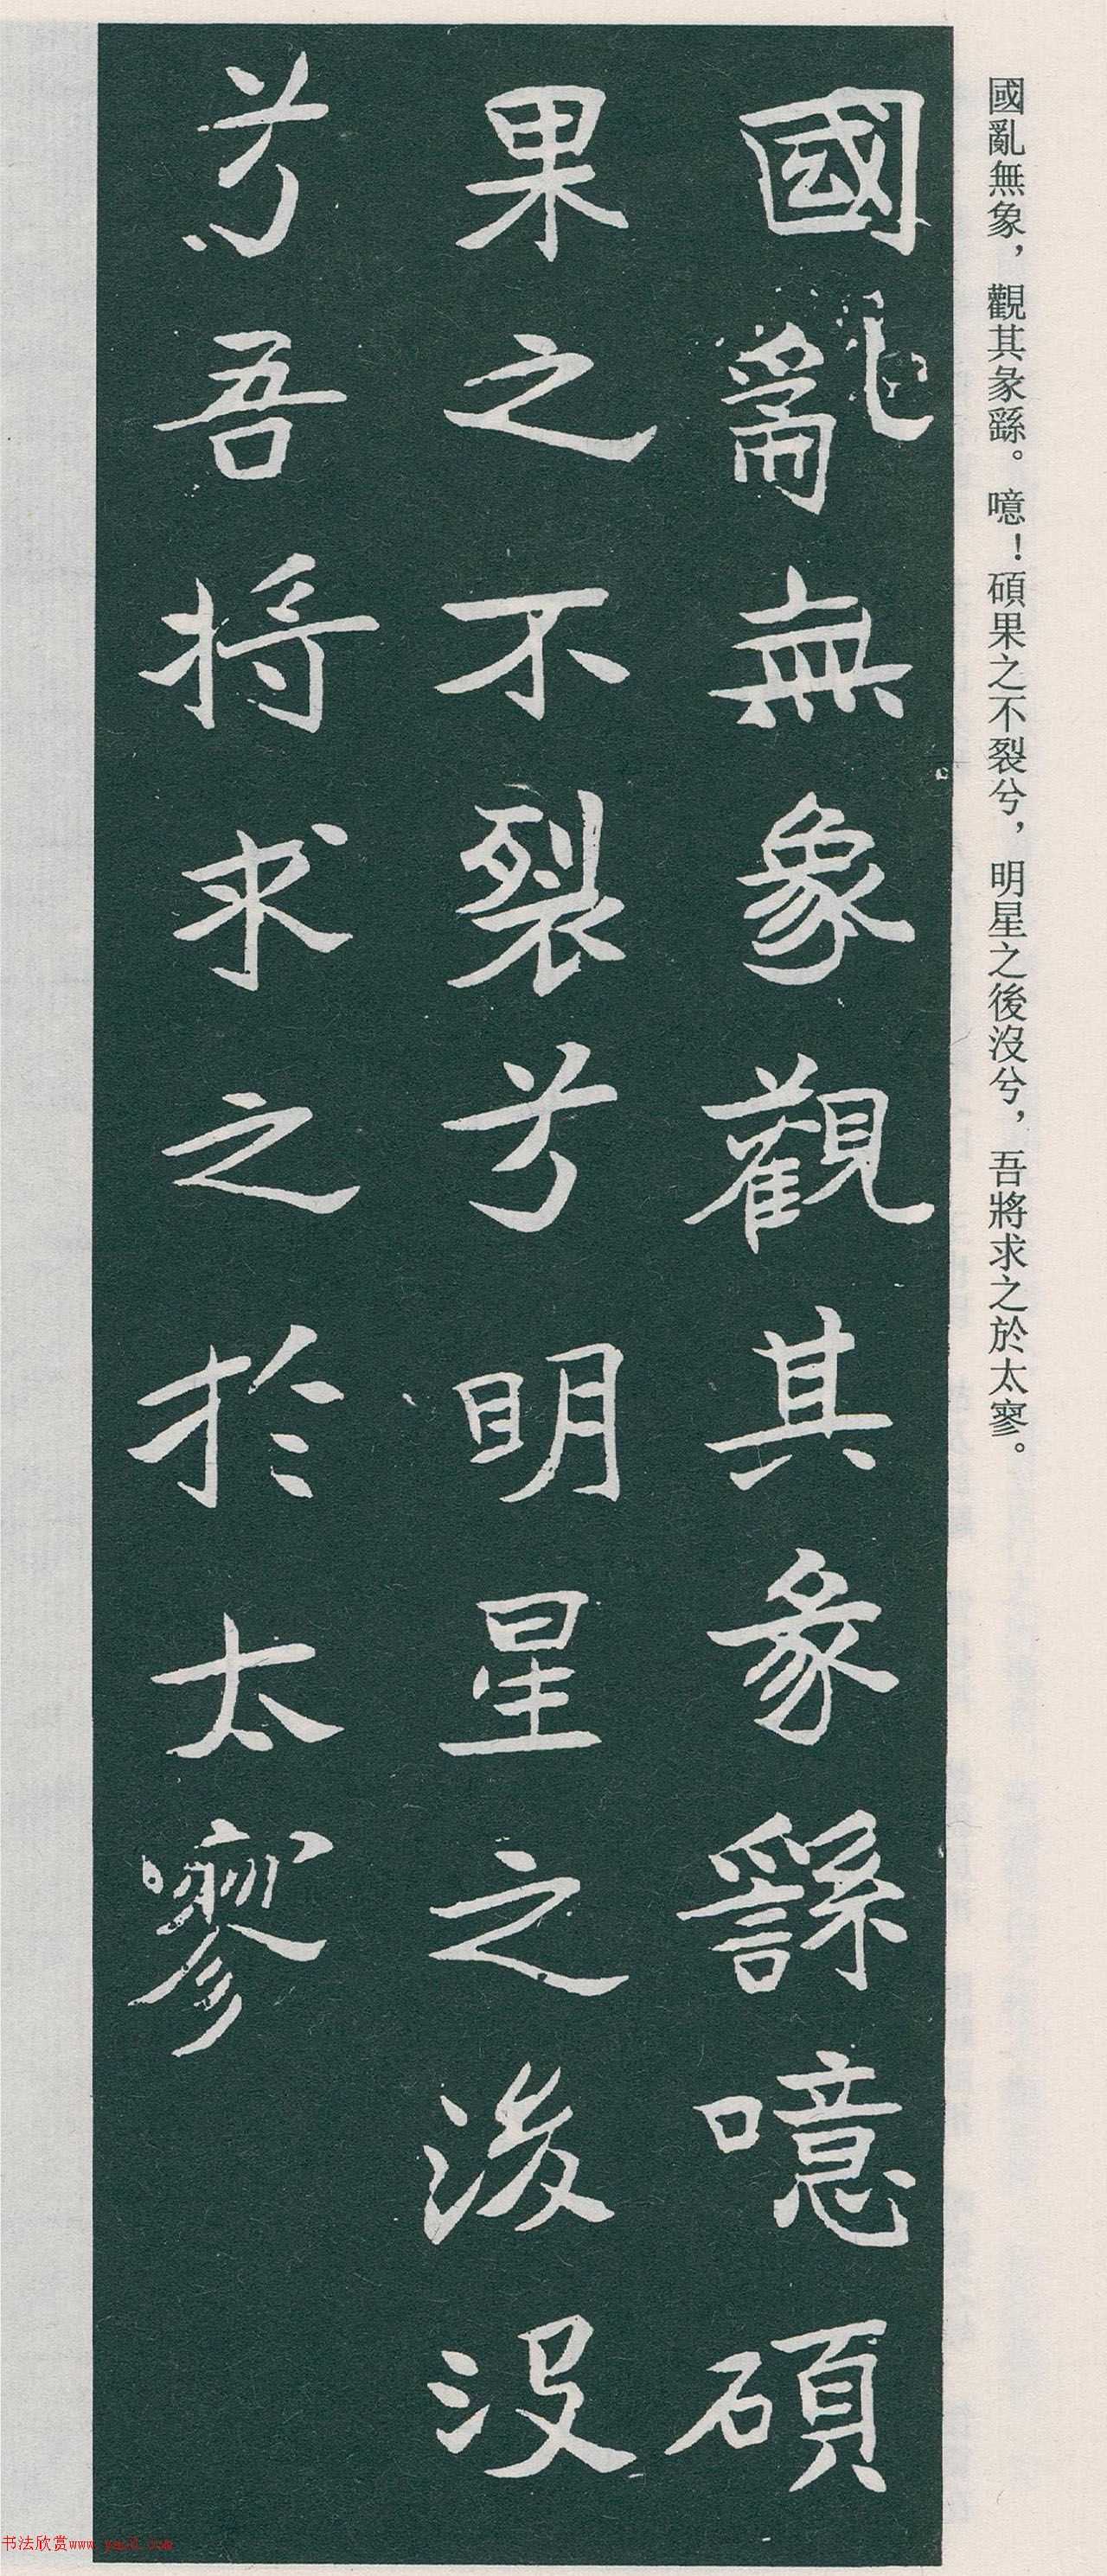 國亂無象，觀其彖繇。噫！碩果之不裂兮，明星之後沒兮，吾將求之於太寥。
國亂無象觀其彖繇噫碩
果之不裂兮明星之後沒
兮吾将求之於太寥
书法欣赏www.yac8.com